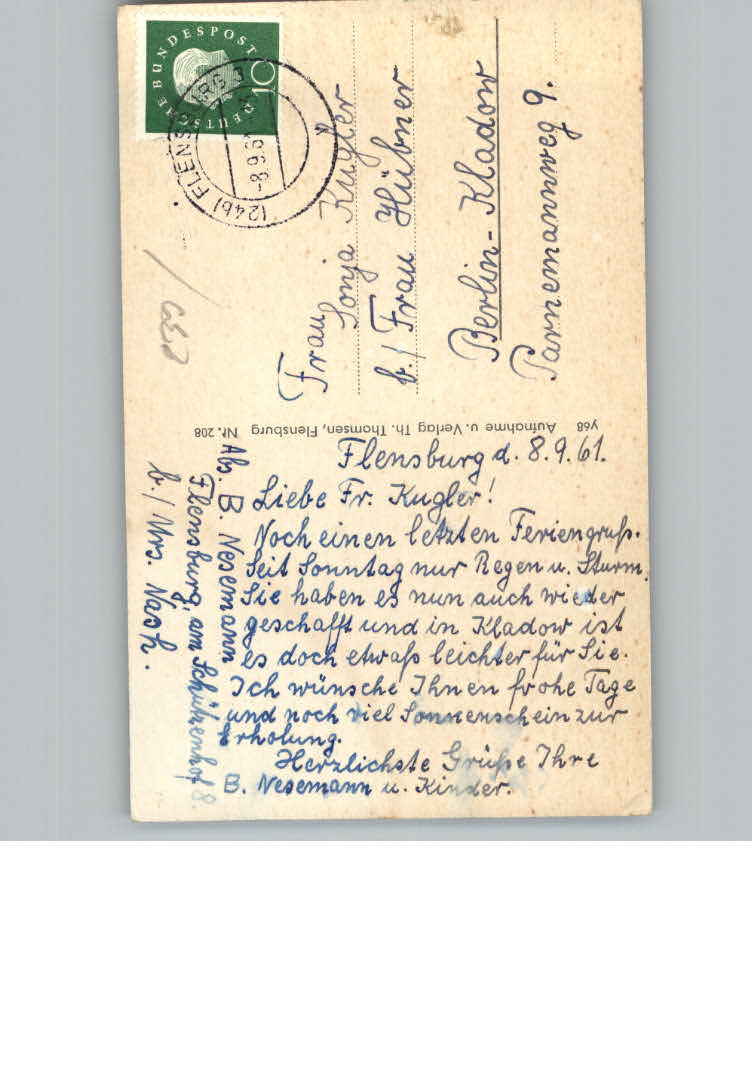 DEUTSCHE BUNDESPOST
10
(24b) FLENSBURG 3
-8.9.61
Frau
Sonja Kugler
b./ Frau Hübner
Berlin-Kladow
Parnemannweg 9.
y68 Aufnahme u. Verlag Th. Thomsen, Flensburg Nr. 208
Flensburg d. 8.9.61.
Liebe Fr. Kugler!
Noch einen letzten Feriengruß.
Seit Sonntag nur Regen u. Sturm.
Sie haben es nun auch wieder
geschafft und in Kladow ist
es doch etwaß leichter für Sie.
Ich wünsche Ihnen frohe Tage
und noch viel Sonnenschein zur
Erholung.
Herzlichste Grüße Ihre
B. Nesemann u. Kinder.
Abs. B. Nesemann
Flensburg, am Schützenhof 8.
b./ Mrs. Nash.